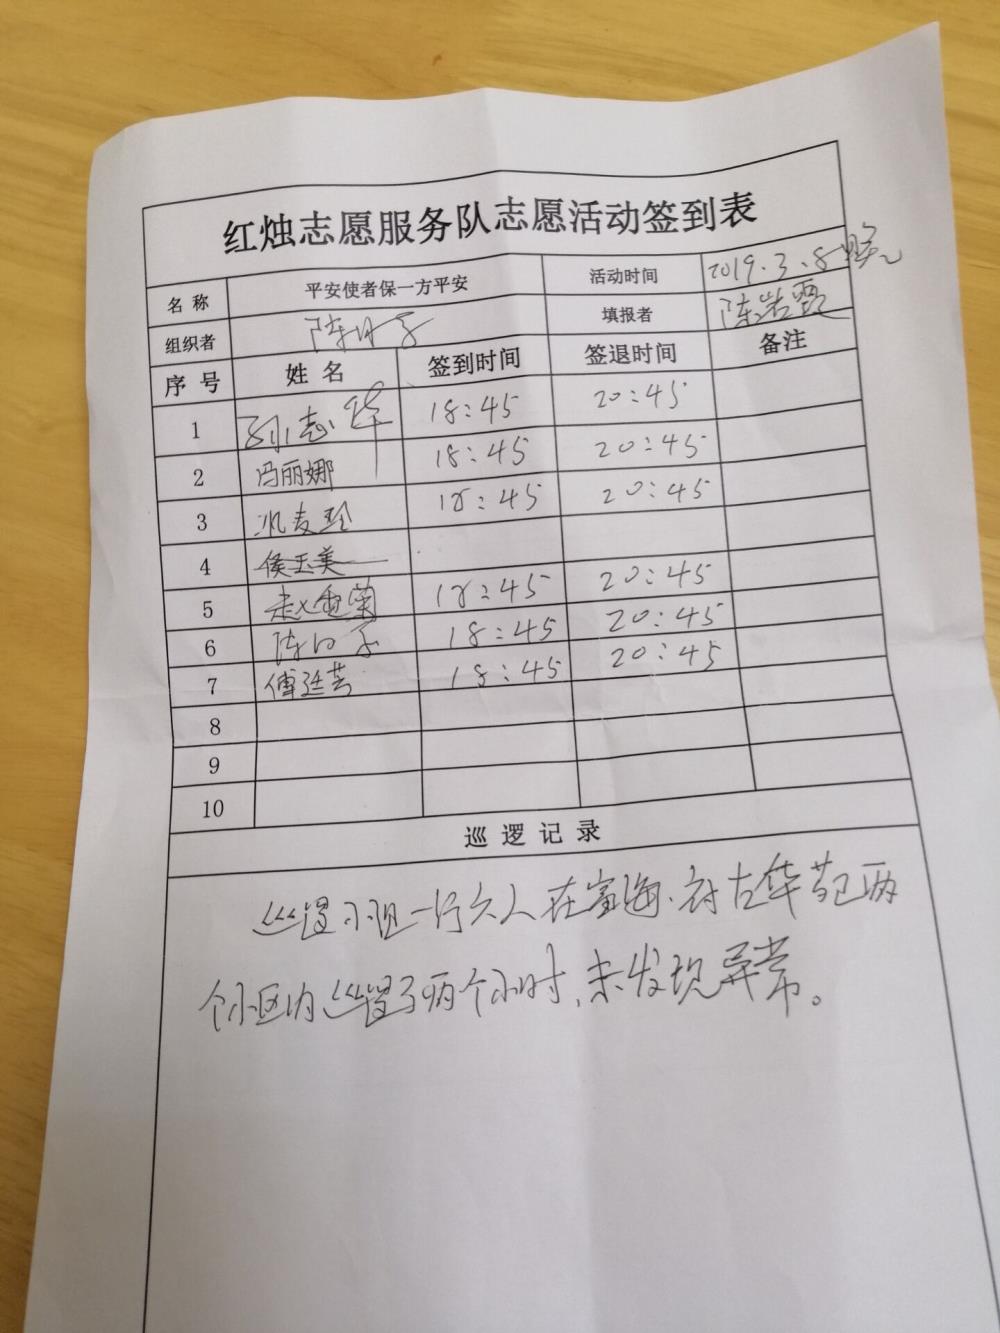 红烛志愿服务队志愿活动签到表
名称 平安使者保一方平安 活动时间 2019.3.8晚
组织者 陈 子 填报者 陈岩霞
序号 姓名 签到时间 签退时间 备注
1 孙志华 18:45 20:45
2 冯丽娜 18:45 20:45
3 麦玲 18:45 20:45
4 侯玉美
5 赵 荣 18:45 20:45
6 陈 子 18:45 20:45
7 傅廷芸 18:45 20:45
8
9
10
巡逻记录
巡逻小组一行六人在富海、古华苑两
个小区内巡逻了两个小时,未发现异常。